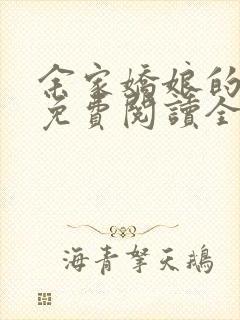 余家嬌娘的
免費閱讀全
海青拏天鵝